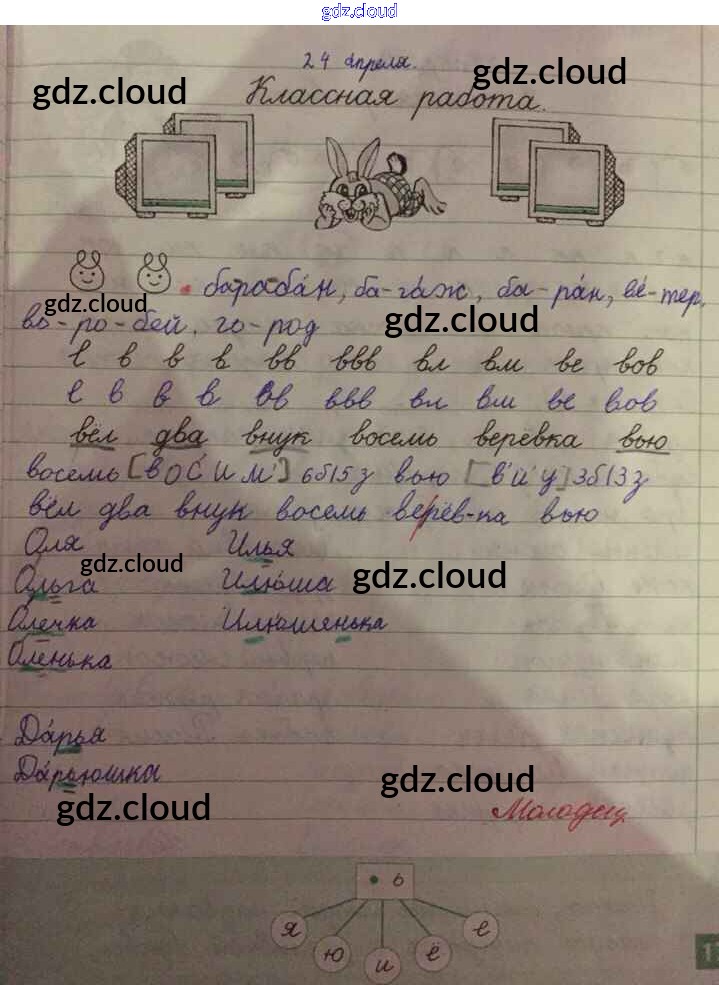 gdz.cloud
24 апреля.
gdz.cloud gdz.cloud
Классная работа.
барабáн, ба-гáж, ба-рáн, вé-тер,
gdz.cloud gdz.cloud
во-ро-бей, го-род
в в в вв ввв вл вм ве вов
в в в вв ввв вл вм ве вов
вёл два внук восемь верёвка вью
восемь [в О С' И М'] 6б15з вью [в' й' у] 3б13з
вёл два внук восемь верёв-ка вью
Оля Илья
gdz.cloud gdz.cloud
Ольга Илюша
Олечка Илюшенька
Оленька
Дáрья
Дáрьюшка
gdz.cloud gdz.cloud
Молодец
• ь
я ю и ё е
1